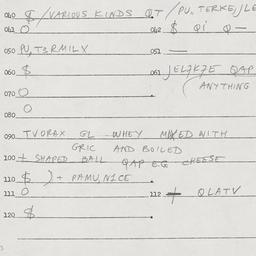 040 $ /VARIOUS KINDS QT /PU. TERKE/JLE
041 O 042 $ QI Q—
050 PU, T3RMILX 051 —
060 $ 061 JEL7K7E QAP
070 O (ANYTHING
080 O
090 TVORAX GL WHEY MIXED WITH
GRIC AND BOILED
100 + SHAPED BALL QAP E.G CHEESE
110 $ ) + PAMU,N1CE
111 O 112 + QLATV
120 $